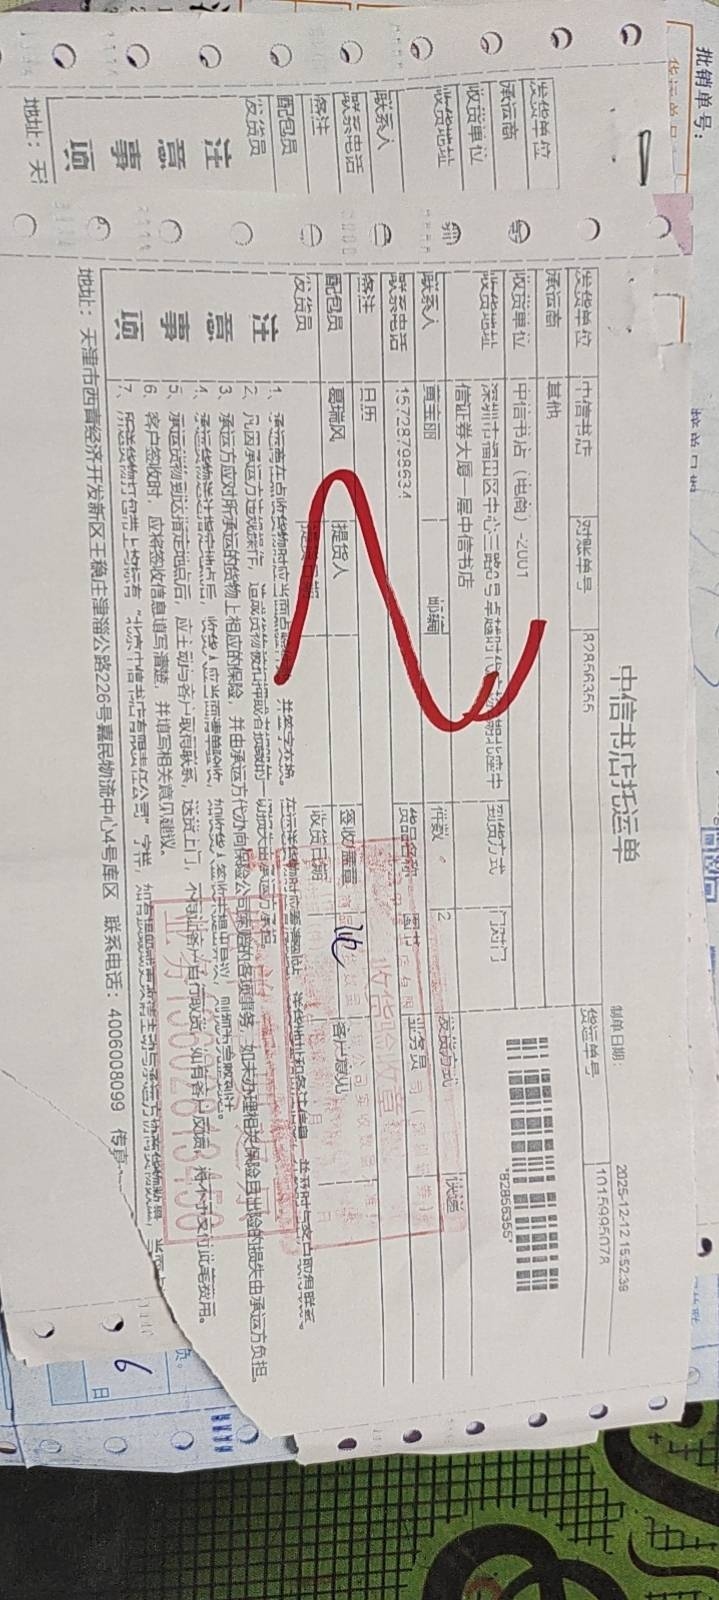 批销单号：
发货单位
承运商
收货单位
收货地址
联系人
联系电话
备注
配包员
发货员
注意事项
地址：天
中信书店托运单
制单日期： 2025-12-12 15:52:39
发货单位 中信书店 对账单号 82856355 货运单号 1015995078
承运商 其他
收货单位 中信书店（电商）-2001 到货方式 门对门
*82856355*
收货地址 深圳市福田区中心三路8号卓越时代广场二期北座中
信证券大厦一层中信书店
联系人 黄宝丽 邮编 件数 2 发货方式 快递
联系电话 15728798634 货品名称 图书 业务员
备注 日历
配包员 葛瑞风 提货人 签收/盖章 客户意见
发货员 提货日期 收货日期
收货验收章
业务15602843450
注意事项
1、承运商在点收货物时应当面点
并签字交换。
2、凡因承运方违规操作，造成货物被扣押或者损毁的一切损失由承运方承担。
3、承运方应对所承运的货物上相应的保险，并由承运方代办向保险公司索赔的各项事务，如未办理相关保险且出险的损失由承运方负担。
4、承运货物送达指定地点后，收货人应当面清单验收，
5、承运货物到达指定地点后，应主动与客户取得联系，送货上门，不得让客户自行取货，如有客户反馈，将不予支付此笔费用。
6、客户签收时，应将签收信息填写清楚，并填写相关意见建议。
7、所送货物打包带上均标有“北京中信书店有限责任公司”字样，
地址：天津市西青经济开发新区王稳庄津淄公路226号嘉民物流中心4号库区 联系电话：4006008099 传真
6 日